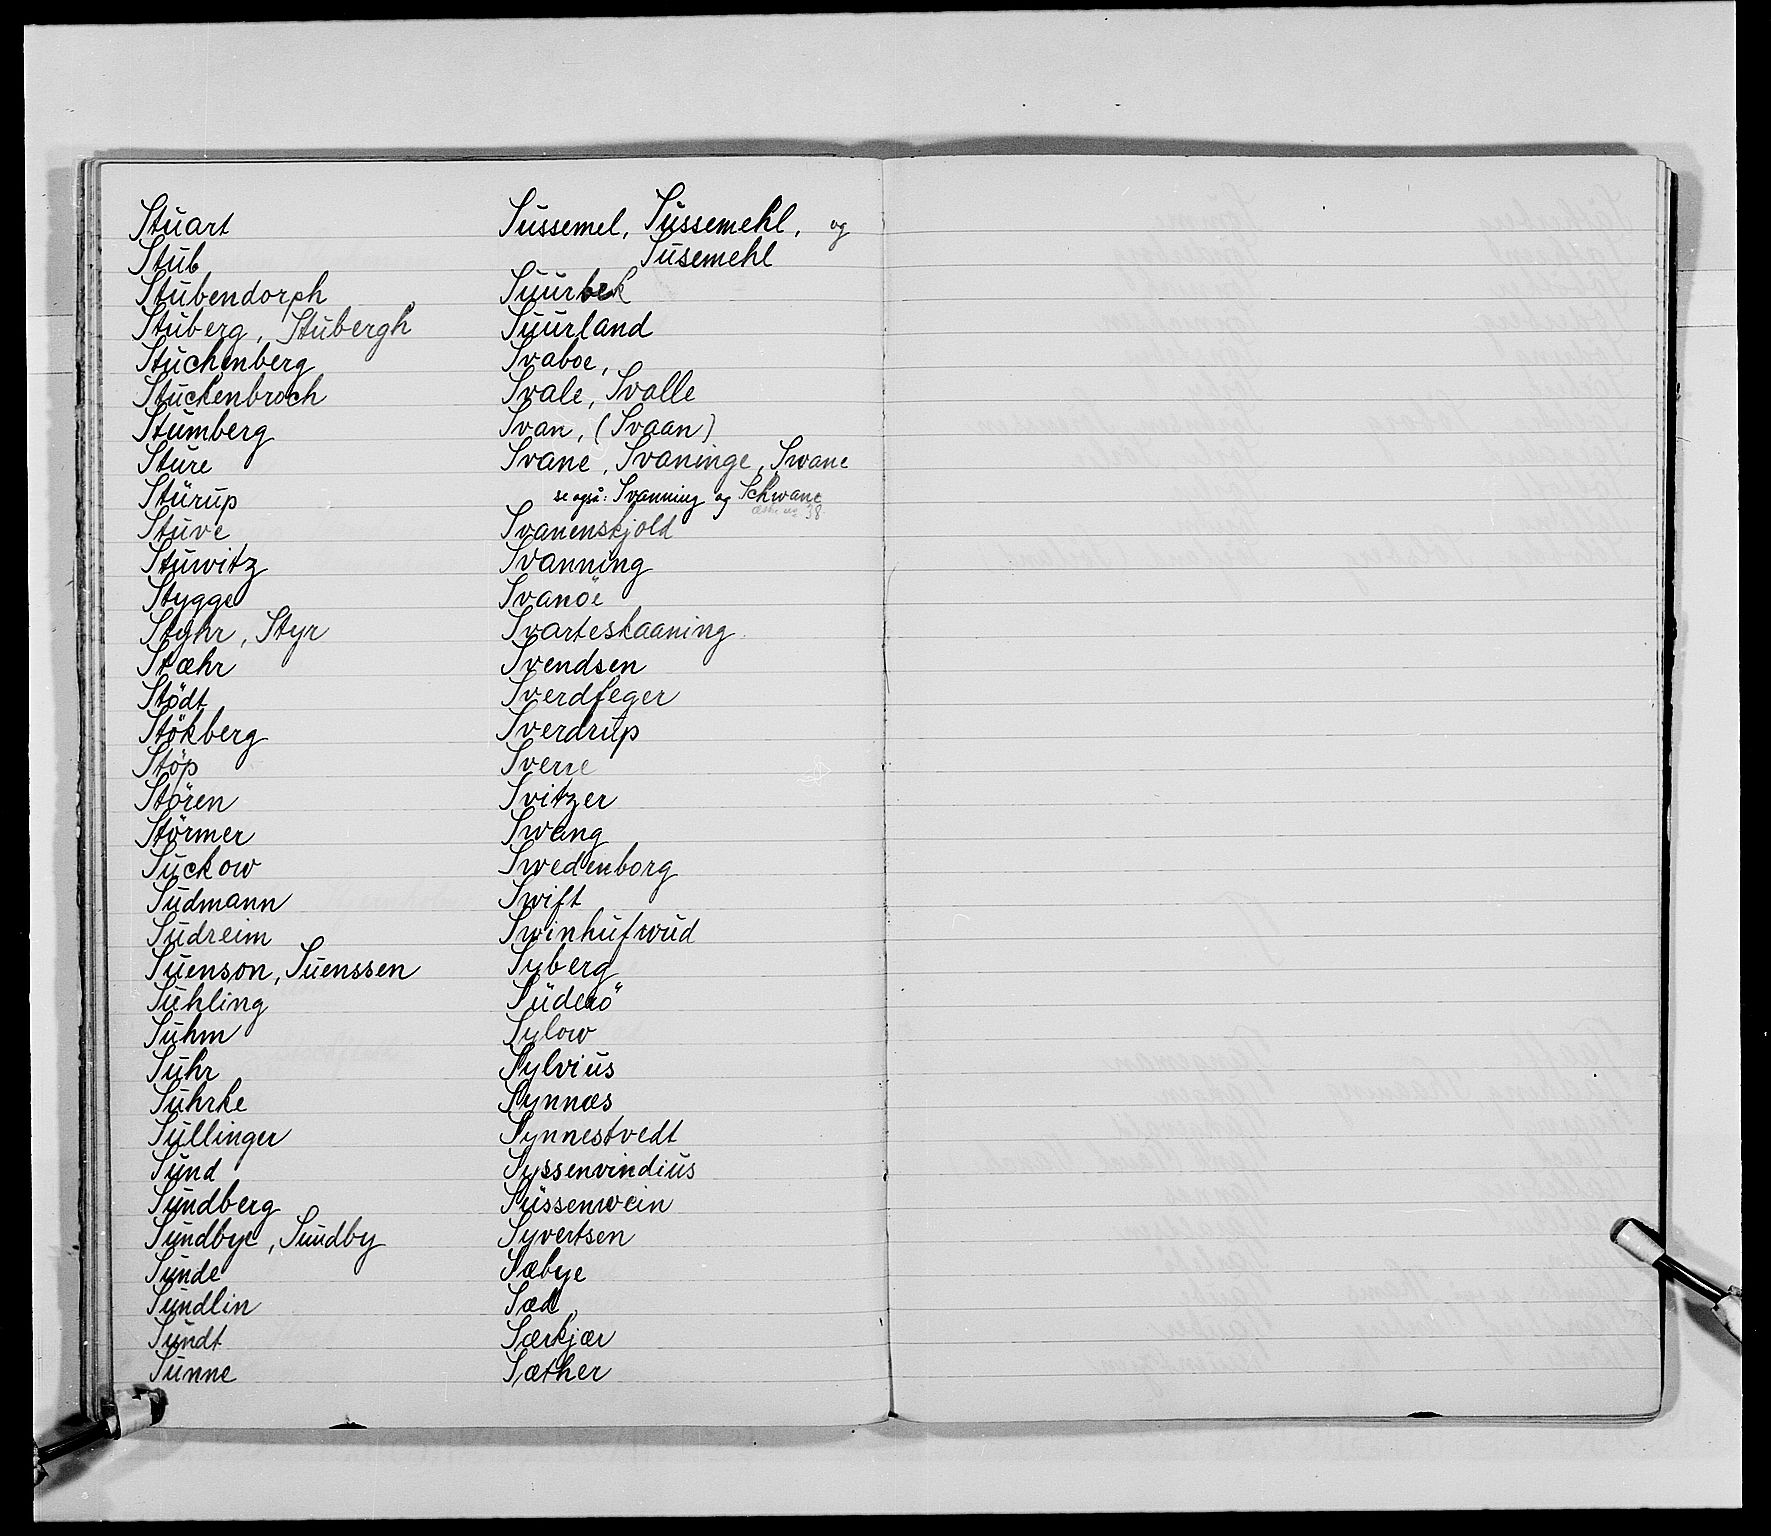 Stuart
Stub
Stubendorph
Stuberg, Stubergh
Stuchenberg
Stuckenbroch
Stumberg
Sture
Stürup
Stuve
Stuwitz
Stygge
Styhr, Styr
Stæhr
Stödt
Stökberg
Stöp
Stören
Störmer
Suckow
Sudmann
Sudreim
Suenson, Suenssen
Suhling
Suhm
Suhr
Suhrke
Sullinger
Sund
Sundberg
Sundbye, Sundby
Sunde
Sundlin
Sundt
Sunne
Sussemel, Süssemehl, og
Susemehl
Suurbek
Suurland
Svaboe,
Svale, Svalle
Svan, (Svaan)
Svane, Svaninge, Swane
se også: Svanning og Schwane
38
Svanenskjold
Svanning
Svanöe
Svarteskaaning
Svendsen
Sverdfeger
Sverdrup
Sverre
Svitzer
Swang
Swedenborg
Swift
Swinhufwud
Syberg
Süderö
Sylow
Sylvius
Synnæs
Synnestvedt
Syssenvindius
Süssenwein
Syvertsen
Sæbye
Sæd
Særkjær
Sæther